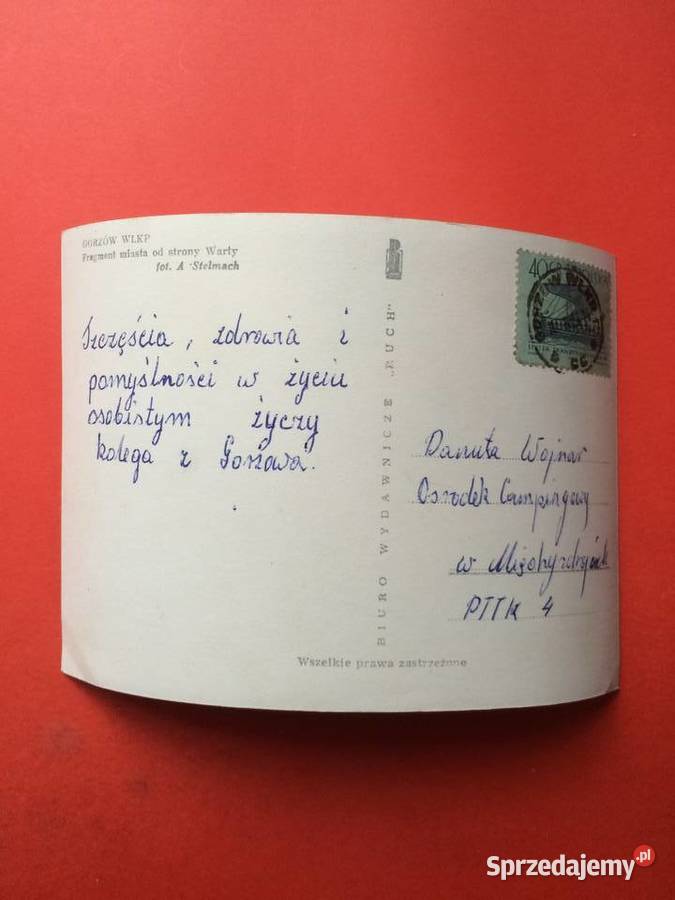 GORZÓW WLKP
Fragment miasta od strony Warty
fot. A Stelmach
Szczęścia, zdrowia i
pomyślności w życiu
osobistym życzy
kolega z Gorzowa.
BIURO WYDAWNICZE „RUCH"
40 GR
GORZÓW WLKP
Danuta Wojnar
Osrodek Campingowy
w Międzyzdrojach
PTTK 4
Wszelkie prawa zastrzeżone
Sprzedajemy.pl